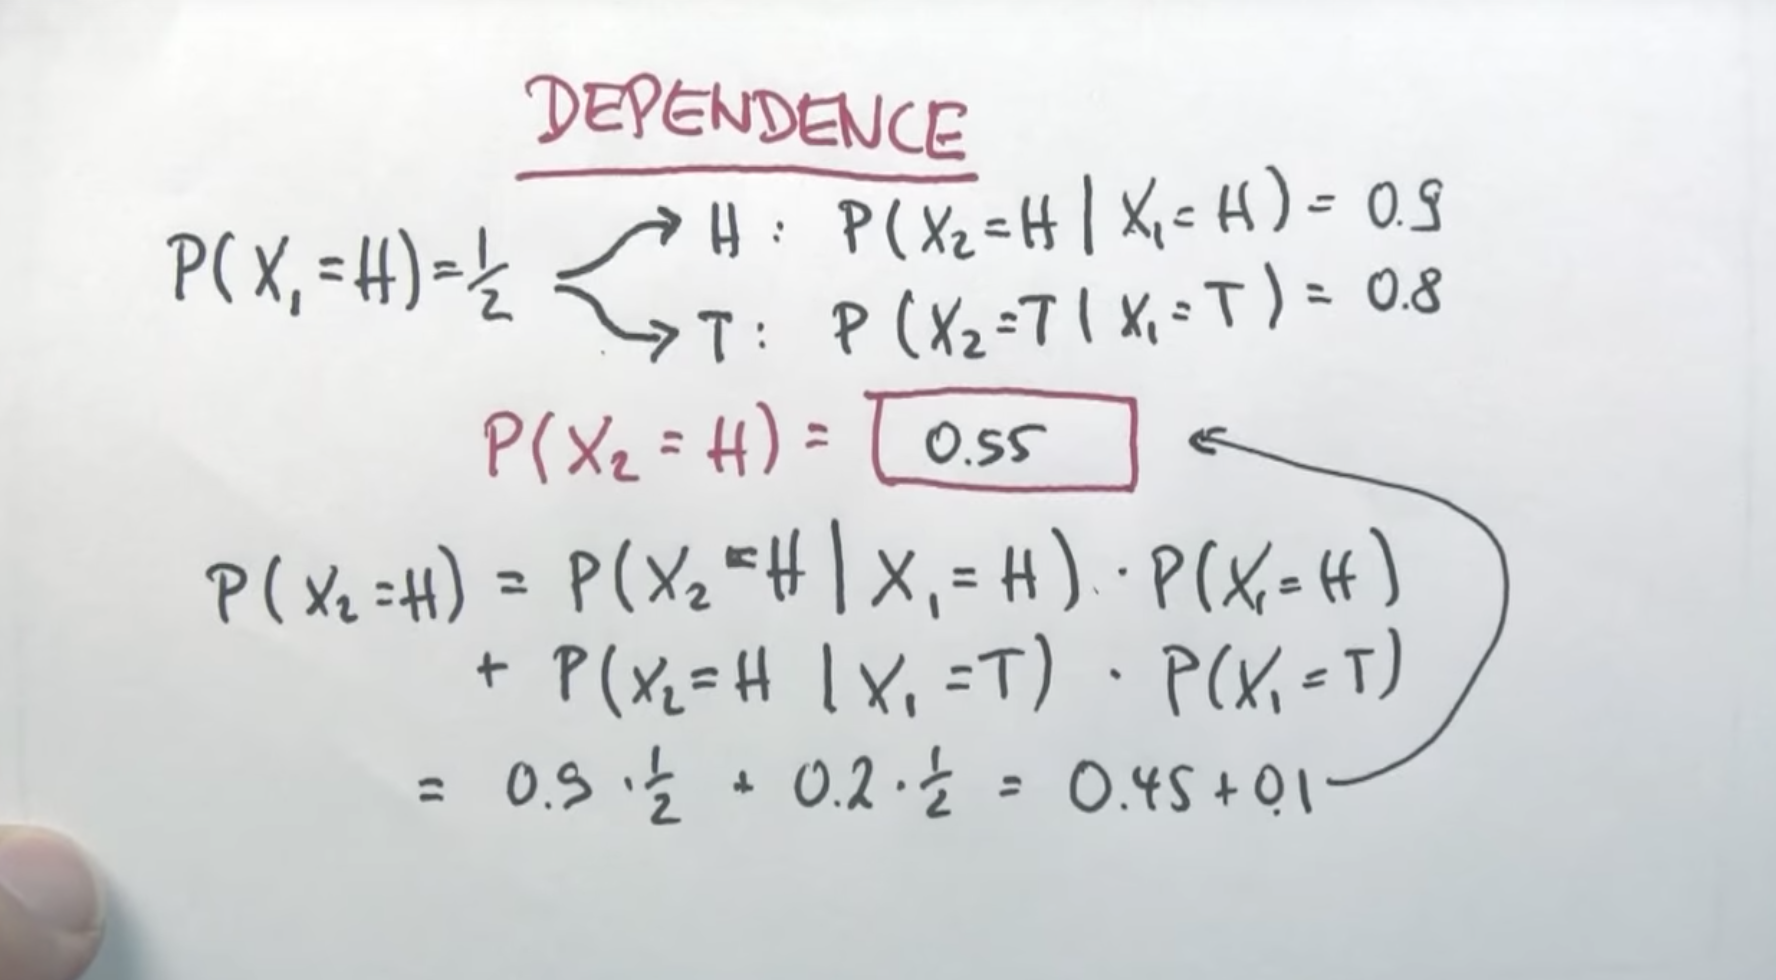 DEPENDENCE
P(X₁=H)=½ → H: P(X₂=H | X₁=H) = 0.9
→ T: P(X₂=T | X₁=T) = 0.8
P(X₂=H) = 0.55
P(X₂=H) = P(X₂=H | X₁=H) · P(X₁=H)
+ P(X₂=H | X₁=T) · P(X₁=T)
= 0.9 · ½ + 0.2 · ½ = 0.45 + 0.1